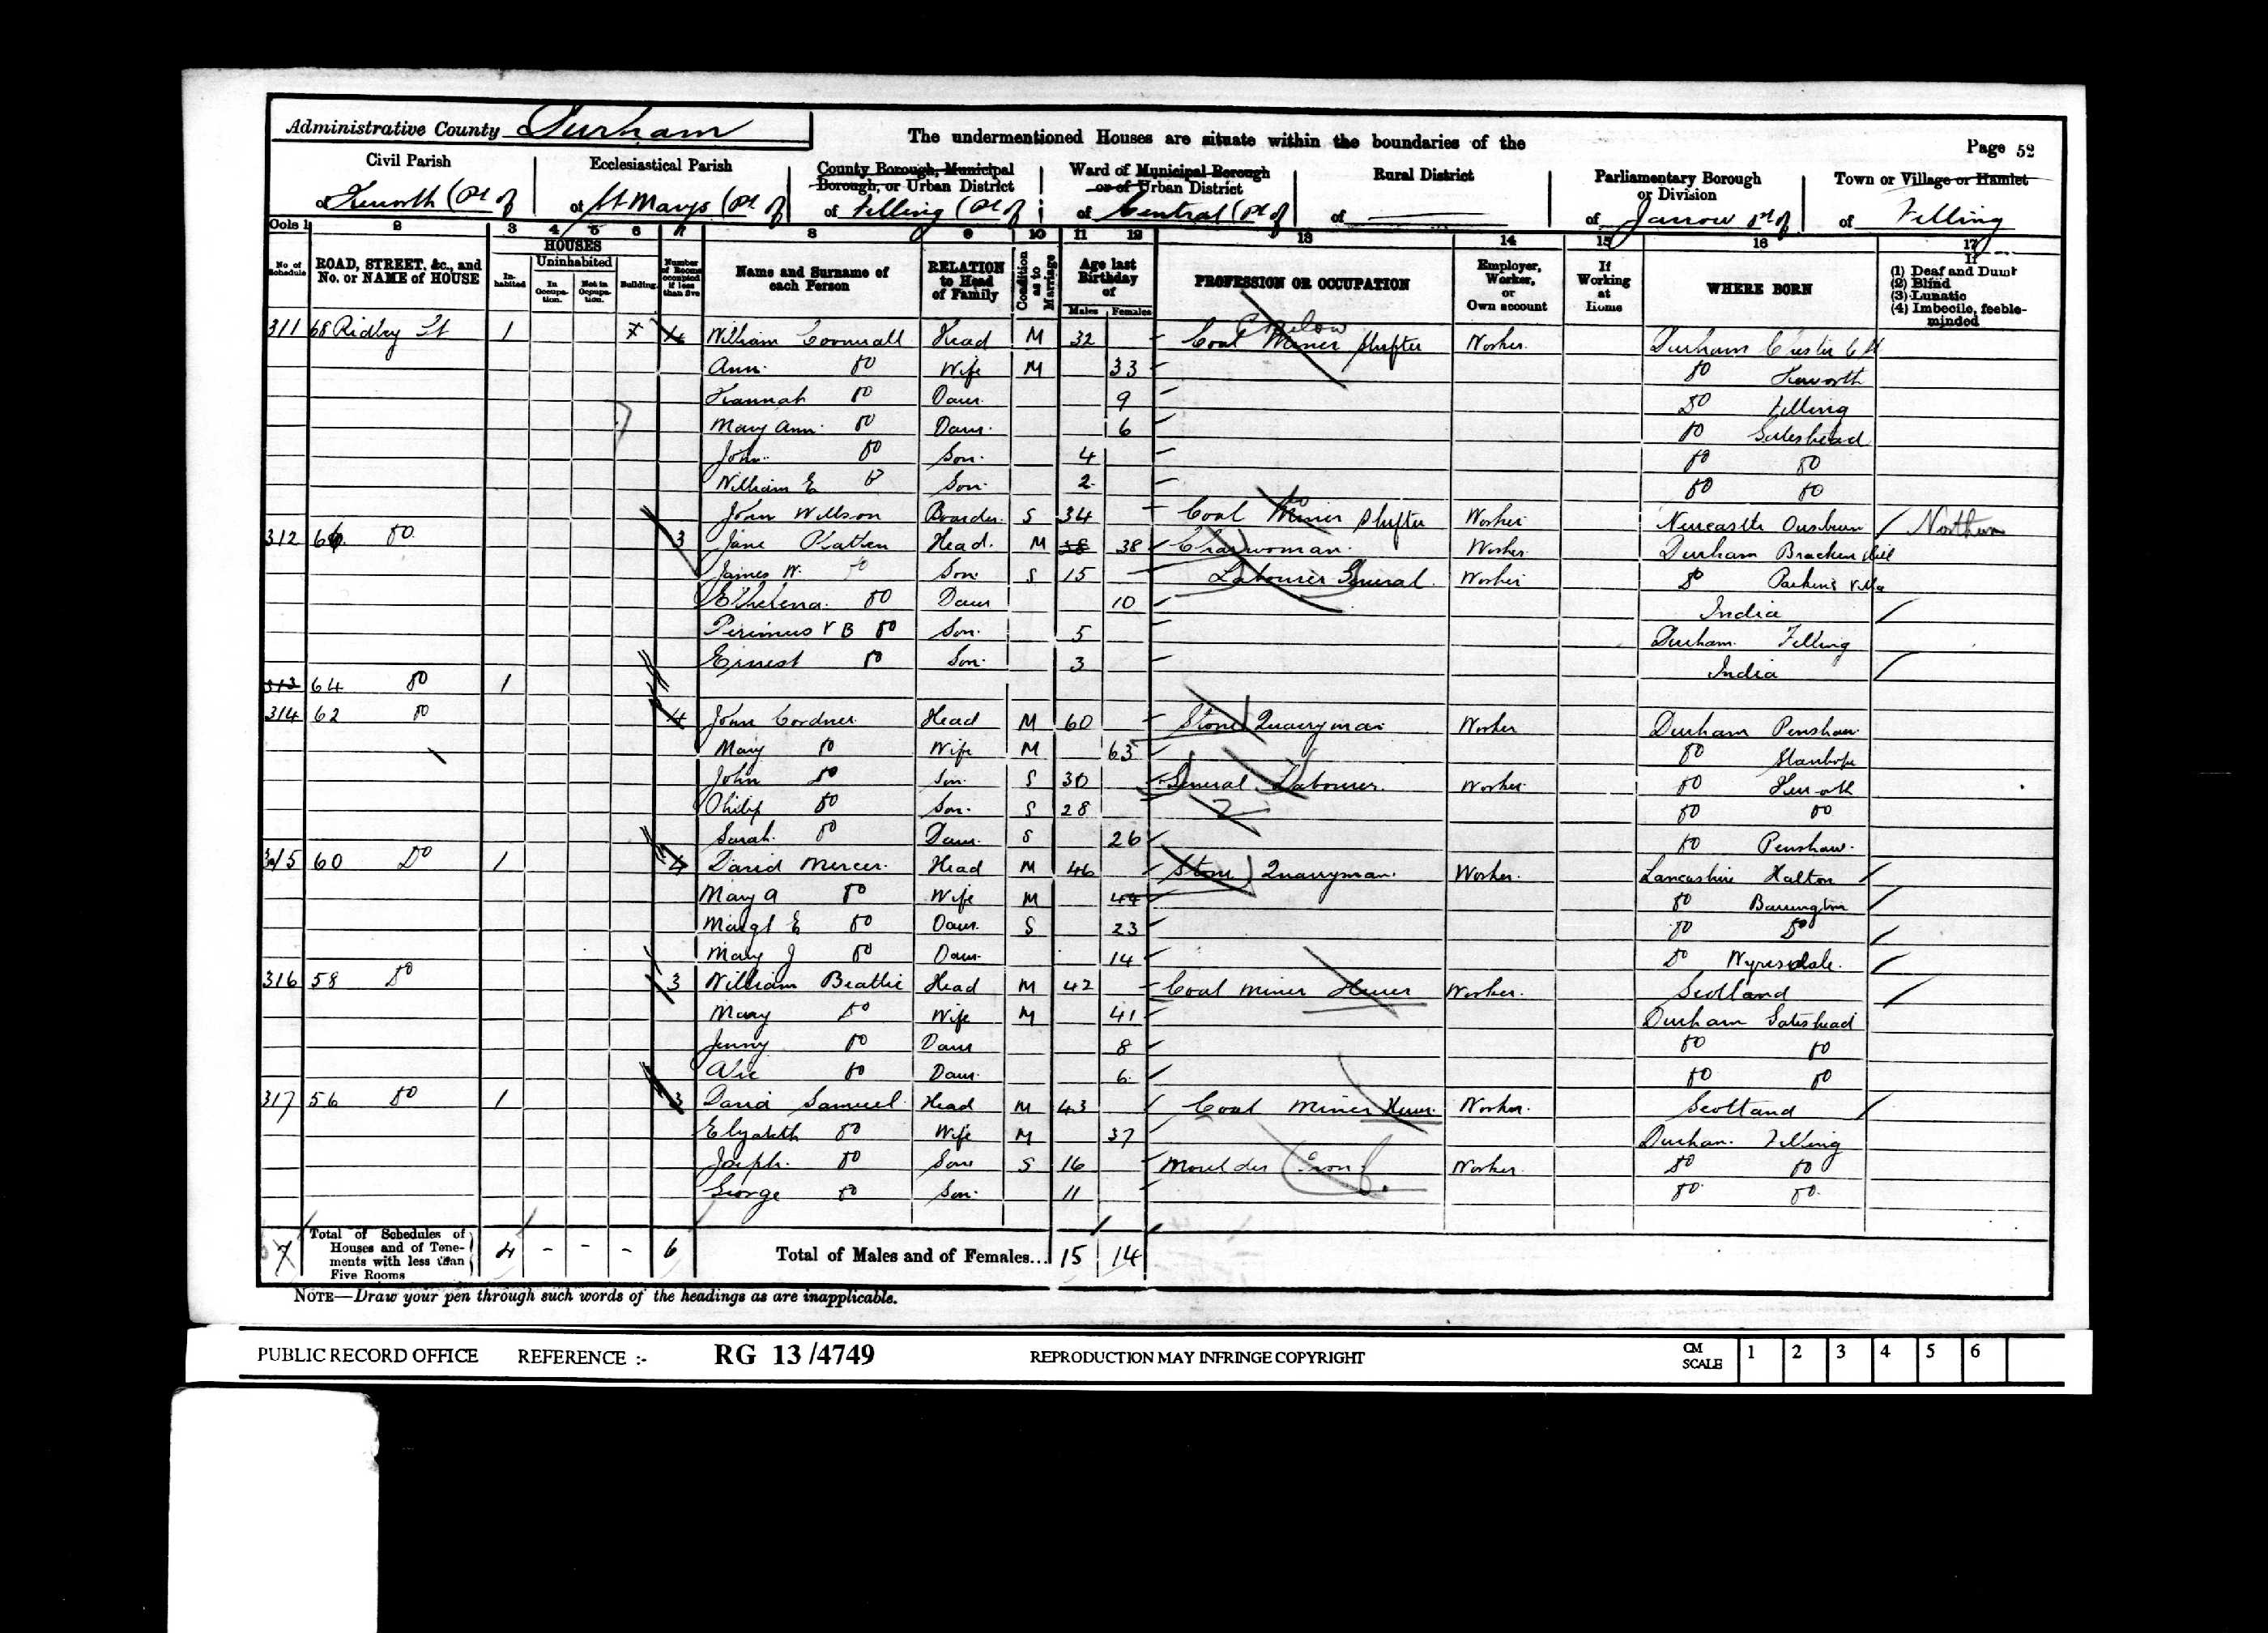 Administrative County Durham
The undermentioned Houses are situate within the boundaries of the
Page 52
Civil Parish
of Heworth (Pt of
Ecclesiastical Parish
of St Marys (Pt of
County Borough, Municipal Borough, or Urban District
of Felling (Pt of
Ward of Municipal Borough or of Urban District
of Central (Pt of
Rural District
of
Parliamentary Borough or Division
of Jarrow Pt of
Town or Village or Hamlet
of Felling
Cols 1 2 3 4 5 6 7 8 9 10 11 12 13 14 15 16 17
No. of Schedule
ROAD, STREET, &c., and No. or NAME of HOUSE
HOUSES
Inhabited
Uninhabited
In Occupation.
Not in Occupation.
Building.
Number of Rooms occupied if less than five
Name and Surname of each Person
RELATION to Head of Family
Condition as to Marriage
Age last Birthday of
Males Females
PROFESSION OR OCCUPATION
Employer, Worker, or Own account
If Working at Home
WHERE BORN
If (1) Deaf and Dumb (2) Blind (3) Lunatic (4) Imbecile, feeble-minded
311 68 Ridley St 1 4 William Head M 32 Coal Miner Shifter Worker Durham Chester
Ann Do Wife M 33 Do Heworth
Hannah Do Daur. 9 Do Felling
Mary Ann Do Daur. 6 Do Gateshead
John Do Son. 4 Do Do
William E Do Son. 2 Do Do
John Willson Boarder S 34 Coal Miner Shifter Worker Newcastle Ouseburn Northum
312 66 Do 3 Jane Head. M 38 38 Charwoman. Worker Durham
James W. Do Son S 15 Labourer General. Worker Do
Ethelena Do Daur 10 India
V B Do Son. 5 Durham Felling
Ernest Do Son. 3 India
313 64 Do 1
314 62 Do 4 John Cordner Head M 60 Stone Quarryman Worker Durham Penshaw
Mary Do Wife M 63 Do Stanhope
John Do Son S 30 General Labourer. Worker Do Heworth
Philip Do Son. S 28 Do Do
Sarah Do Daur. S 26 Do Penshaw.
315 60 Do 1 4 David Mercer. Head M 46 Stone Quarryman. Worker. Lancashire Halton
Mary A Do Wife M 44 Do
Margt E Do Daur. S 23 Do Do
Mary J Do Daur. 14 Do Wyresdale.
316 58 Do 3 William Beattie Head M 42 Coal Miner Hewer Worker. Scotland
Mary Do Wife M 41 Durham Gateshead
Jenny Do Daur 8 Do Do
Do Daur. 6 Do Do
317 56 Do 1 3 David Samuel Head M 43 Coal Miner Hewer. Worker. Scotland
Elizabeth Do Wife M 37 Durham. Felling
Joseph. Do Son S 16 Moulder (Iron) Worker. Do Do
George Do Son. 11 Do Do
7 Total of Schedules of Houses and of Tenements with less than Five Rooms 4 - - - 6 Total of Males and of Females... 15 14
NOTE—Draw your pen through such words of the headings as are inapplicable.
PUBLIC RECORD OFFICE REFERENCE :- RG 13/4749 REPRODUCTION MAY INFRINGE COPYRIGHT CM SCALE 1 2 3 4 5 6